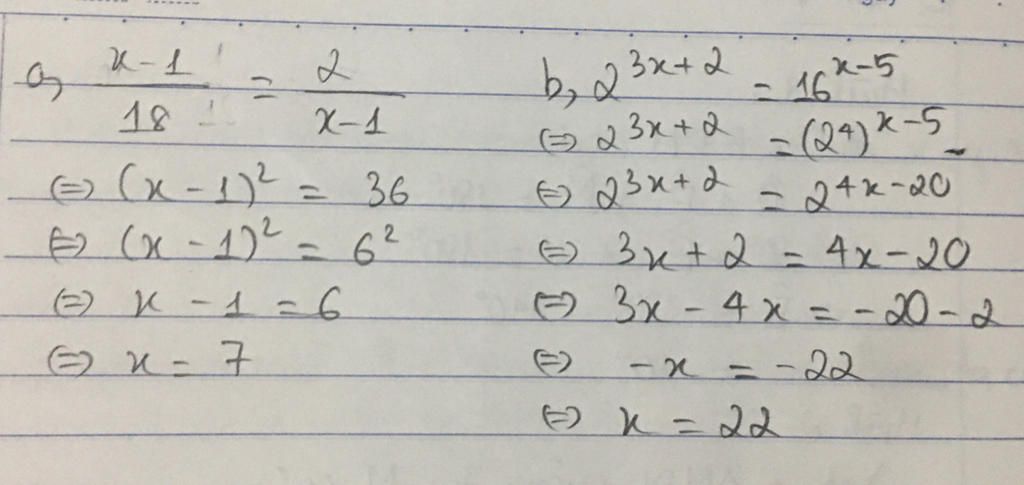 a, \frac{x-1}{18} = \frac{2}{x-1}
⇔ (x-1)² = 36
⇔ (x-1)² = 6²
⇔ x - 1 = 6
⇔ x = 7
b, 2^{3x+2} = 16^{x-5}
⇔ 2^{3x+2} = (2^4)^{x-5}
⇔ 2^{3x+2} = 2^{4x-20}
⇔ 3x + 2 = 4x - 20
⇔ 3x - 4x = -20 - 2
⇔ -x = -22
⇔ x = 22